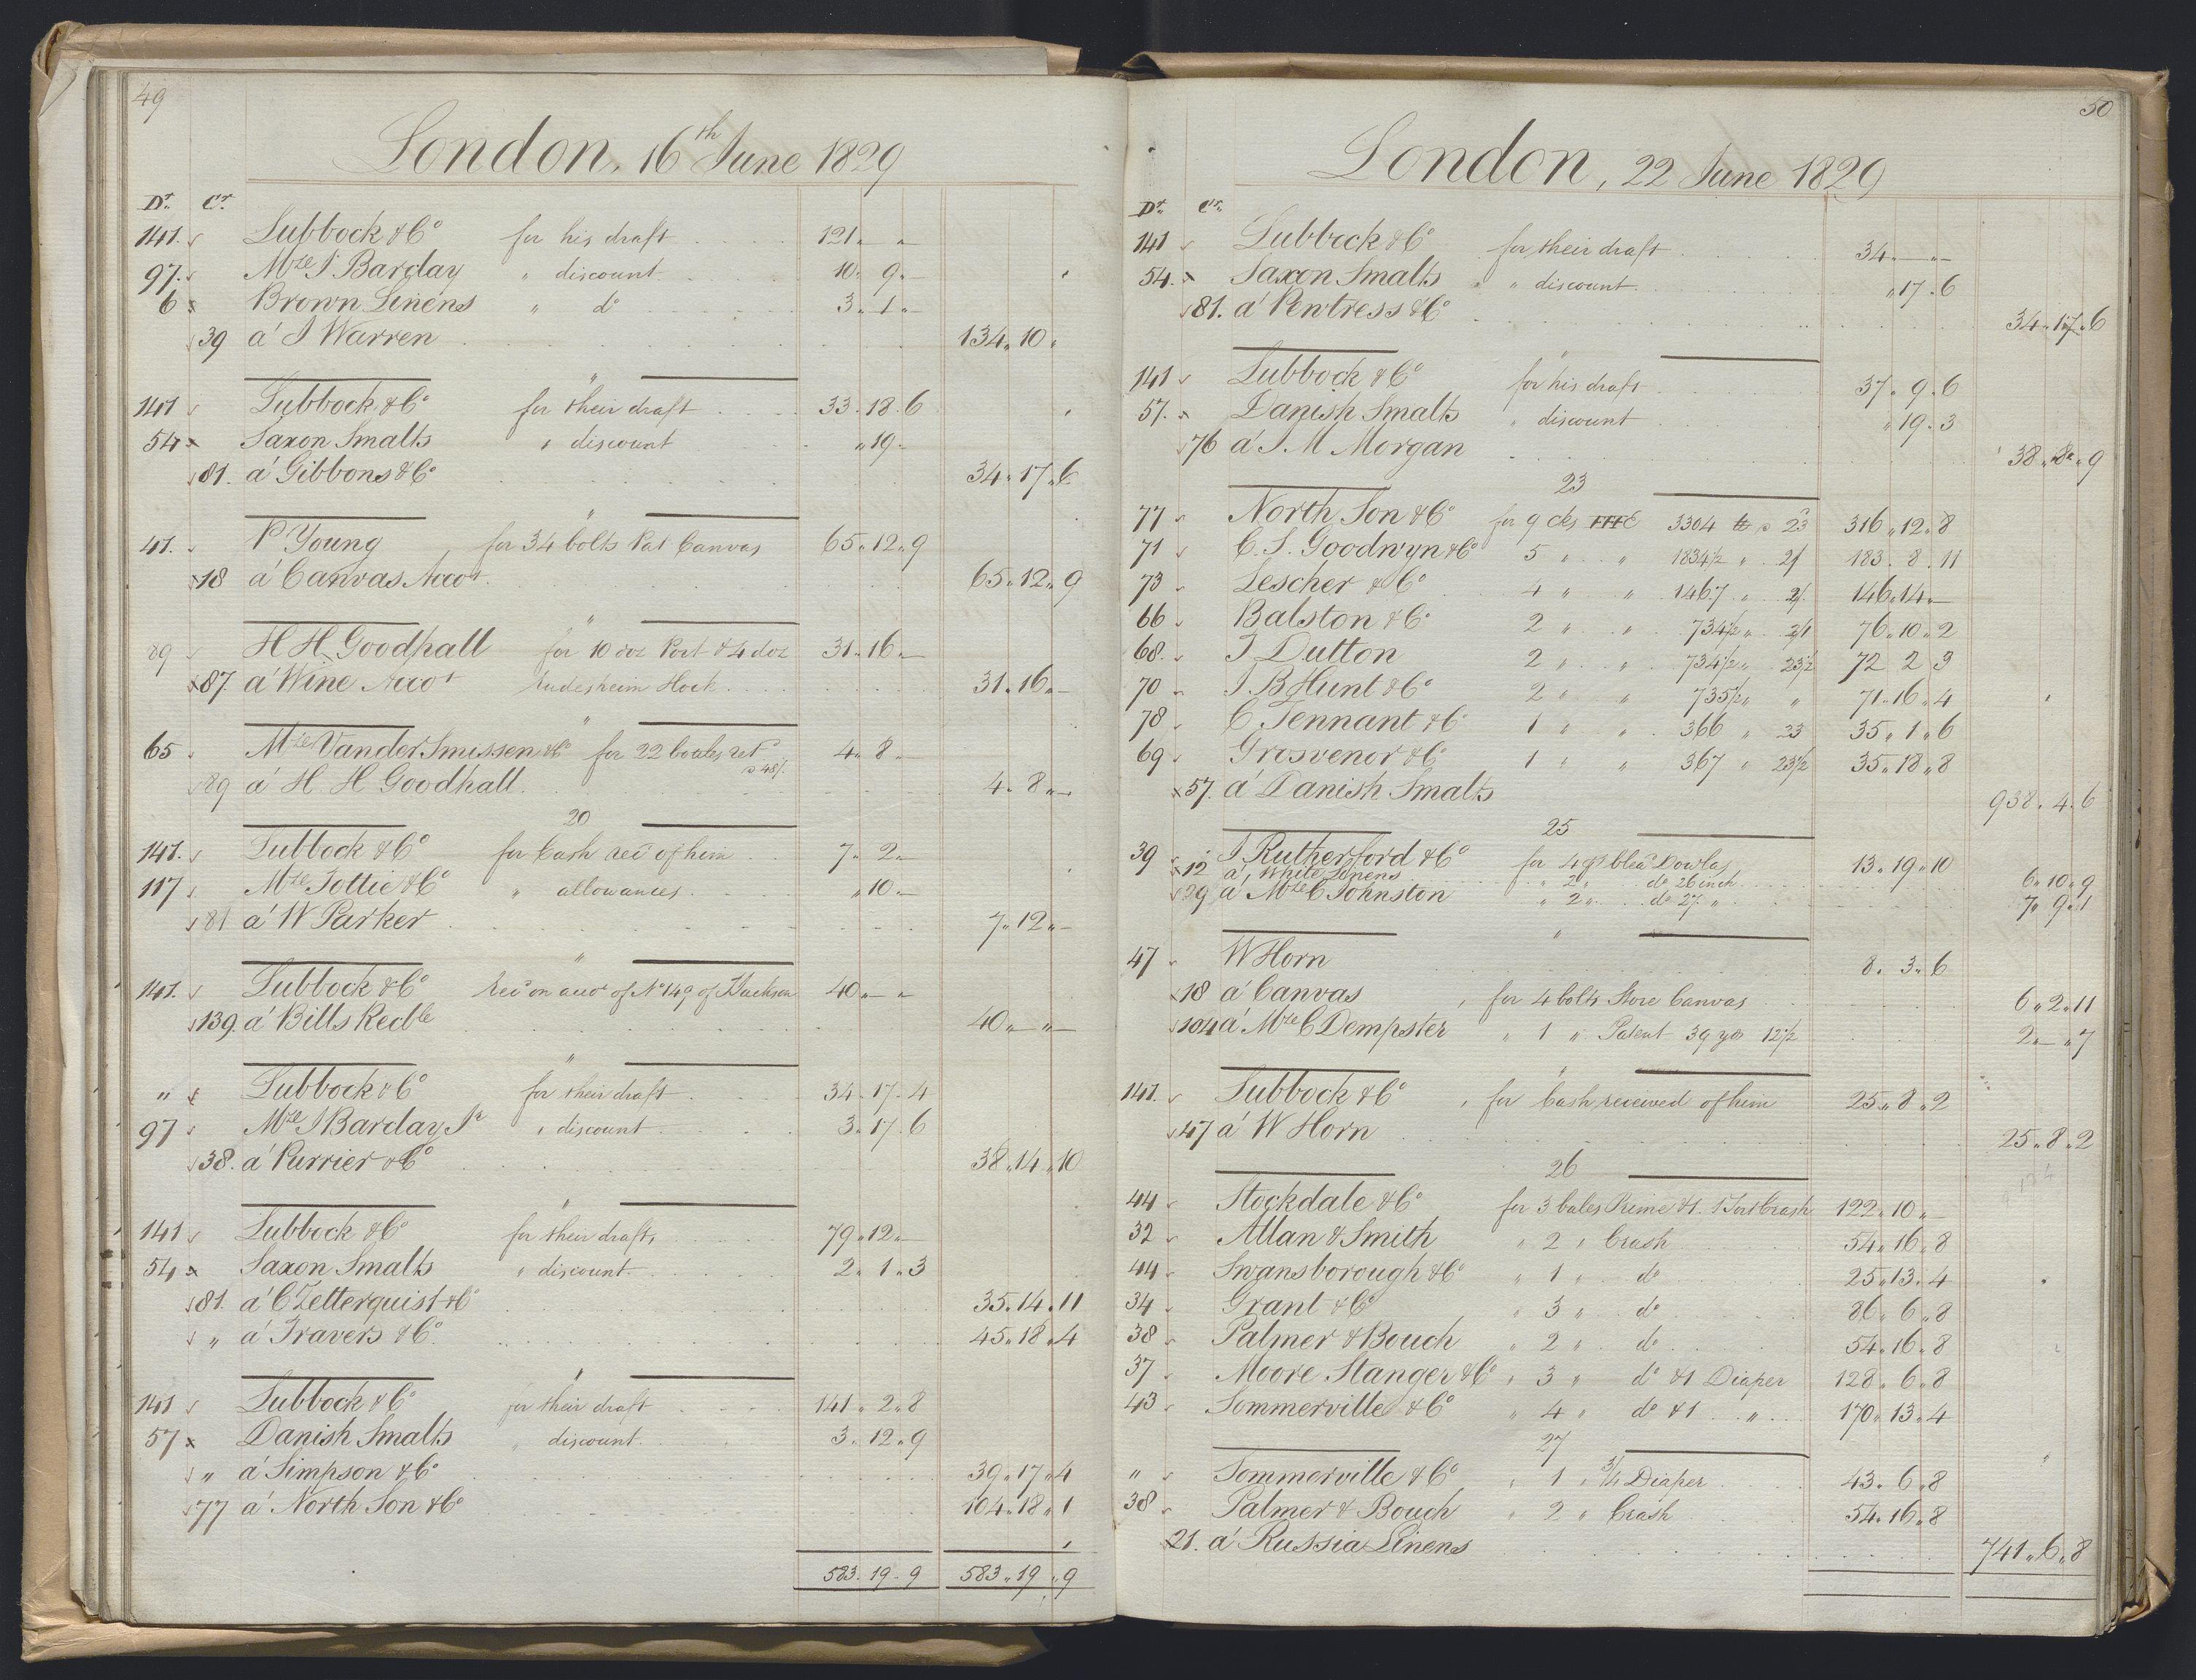 49
London, 16th June 1829
Dr. Cr.
141. Lubbock & Co for his draft 121 " "
97. Mze J Barclay " discount 10 " 9 " –
6 Brown Linens " do 3 " 1 " –
39 a' J Warren 134 " 10 "
"
141 Lubbock & Co for their draft 33 . 18 . 6
54 Saxon Smalts " discount " 19 –
81. a' Gibbons & Co 34 " 17 " 6
"
41. P Young for 34 bolts Pat Canvas 65 " 12 " 9
18 a' Canvas Accot. 65 " 12 " 9
"
89 H H Goodhall for 10 doz Port & 4 doz 31 " 16 " –
87. a' Wine Accot Rudesheim Hock 31 " 16 " –
"
65 Mze Vander Smissen & Co for 22 bottles retd 4 " 8 " –
@ 48/.
89 a' H H Goodhall 4 " 8 " –
20
141. Lubbock & Co for Cash recd of him 7 " 2 " –
117 Mze Tottie & Co " allowances " 10 –
81 a' W Parker 7 " 12 " –
"
141. Lubbock & Co Recd on accot of No 149 of Jackson 40 " – "
139. a' Bills Recble 40 " – " –
"
" Lubbock & Co for their draft 34 . 17 . 4
97 Mze J Barclay Jr " discount 3 . 17 . 6
38. a' Purrier & Co 38 " 14 " 10
"
141 Lubbock & Co for their drafts 79 " 12 " –
54 Saxon Smalts " discount 2 " 1 " 3
81. a' C Zetterquist & Co 35 . 14 . 11
" a' Travers & Co 45 " 18 " 4
"
141 Lubbock & Co for their draft 141 " 2 " 8
57 Danish Smalts " discount 3 . 12 " 9
" a' Simpson & Co 39 " 17 " 4
77 a' North Son & Co 104 " 18 " 1
583 . 19 . 9 583 " 19 " 9
50
London, 22 June 1829
Dr. Cr.
141 Lubbock & Co for their draft 34 " – " –
54. Saxon Smalts " discount " 17 . 6
81. a' Pewtress & Co 34 " 17 " 6
"
141 Lubbock & Co for his draft 37 " 9 " 6
57. Danish Smalts " discount " 19 . 3
76 a' J M Morgan 38 " 8 " 9
23
77 North Son & Co for 9 cks FFFE 3304 lb @ 23 316 " 12 " 8
71 C. S. Goodwyn & Co 5 " " 1834 1/2 " 2/ 183 . 8 . 11
73 Lescher & Co 4 " " 1467 " 2/ 146 " 14 " –
66 Balston & Co 2 " " 734 1/2 " 2/1 76 " 10 " 2
68. J Dutton 2 " " 734 1/2 " 23 1/2 72 2 9
70 J B Hunt & Co 2 " " 735 1/2 " " 71 " 16 " 4
78 C Tennant & Co 1 " " 366 " 23 35 " 1 " 6
69 Grosvenor & Co 1 " " 367 " 23 1/2 35 " 18 " 8
57. a' Danish Smalts 938 . 4 . 6
25
39 J Rutherford & Co for 4 ps bleach Dowlas 13 " 19 " 10
12 a' White Linens " 2 " do 26 inch 6 " 10 " 9
29 a' Mze C Johnston " 2 " do 27 " 7 " 9 " 1
"
47 W Horn 8 . 3 " 6
18 a' Canvas " for 4 bolts Store Canvas 6 " 2 " 11
104 a' Mze C Dempster " 1 " Patent 39 yds 12 1/2 2 " – " 7
"
141. Lubbock & Co " for Cash received of him 25 " 8 " 2
47 a' W Horn 25 " 8 " 2
26
44 Stockdale & Co for 3 bales Prime & 1. 1 Sort Crash 122 " 10 " –
32 Allan & Smith " 2 " Crash 54 " 16 " 8
44 Swansborough & Co " 1 " do 25 " 13 . 4
34 Grant & Co " 3 " do 86 " 6 " 8
38 Palmer & Bouch " 2 " do 54 " 16 " 8
37 Moore Stanger & Co " 3 " do & 1 Diaper 128 . 6 " 8
43 Sommerville & Co " 4 " do & 1 " 170 " 13 . 4
27
" Sommerville & Co " 1 " 3/4 Diaper 43 . 6 . 8
38 Palmer & Bouch " 2 " Crash 54 . 16 " 8
21. a' Russia Linens 741 " 6 " 8